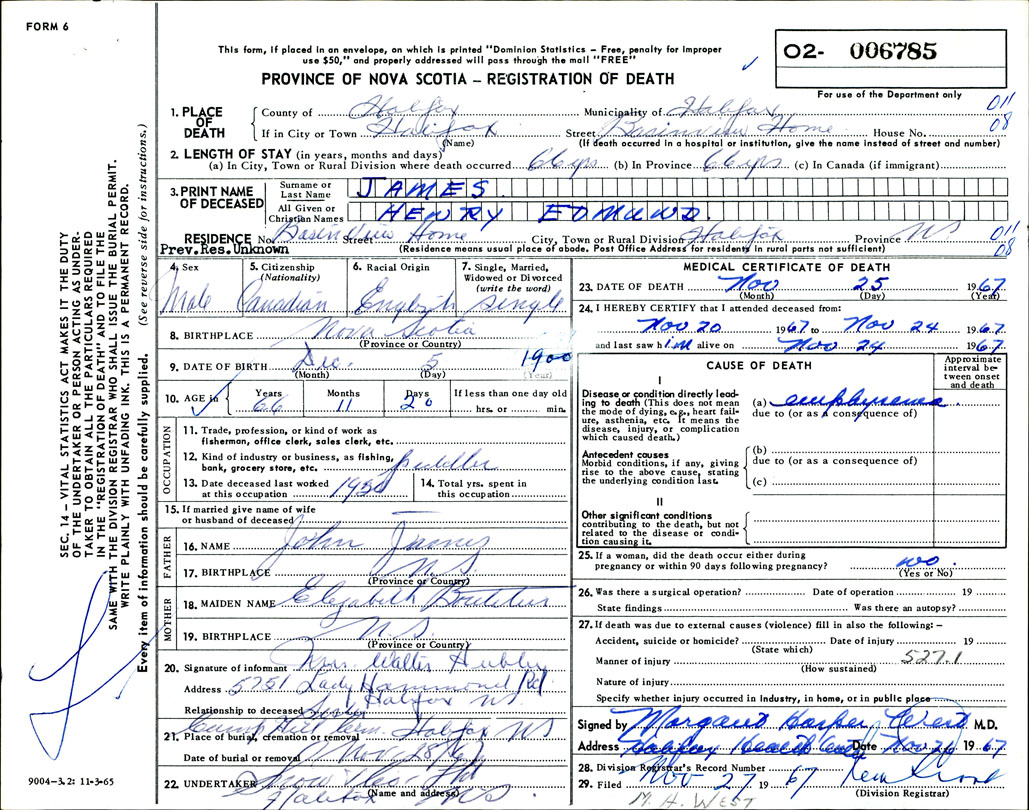 FORM 6
This form, if placed in an envelope, on which is printed "Dominion Statistics – Free, penalty for improper
use $50," and properly addressed will pass through the mail "FREE"
PROVINCE OF NOVA SCOTIA – REGISTRATION OF DEATH
02- 006785
For use of the Department only
011
08
1. PLACE OF DEATH
County of Halifax Municipality of Halifax
If in City or Town Halifax Street Basinview Home House No.
(Name) (If death occurred in a hospital or institution, give the name instead of street and number)
2. LENGTH OF STAY (in years, months and days)
(a) In City, Town or Rural Division where death occurred 66 yrs (b) In Province 66 yrs (c) In Canada (if immigrant)
3. PRINT NAME OF DECEASED
Surname or Last Name JAMES
All Given or Christian Names HENRY EDMUND
RESIDENCE No. Basinview Street Home City, Town or Rural Division Halifax Province NS
011
08
Prev.Res.Unknown (Residence means usual place of abode. Post Office Address for residents in rural parts not sufficient)
4. Sex 5. Citizenship (Nationality) 6. Racial Origin 7. Single, Married, Widowed or Divorced (write the word)
Male Canadian English Single
8. BIRTHPLACE Nova Scotia
(Province or Country)
9. DATE OF BIRTH Dec. 5 1900
(Month) (Day) (Year)
10. AGE in Years Months Days If less than one day old
66 11 20 hrs. or min.
OCCUPATION
11. Trade, profession, or kind of work as
fisherman, office clerk, sales clerk, etc.
12. Kind of industry or business, as fishing,
bank, grocery store, etc. peddler
13. Date deceased last worked
at this occupation 1950
14. Total yrs. spent in
this occupation
15. If married give name of wife
or husband of deceased
FATHER
16. NAME John James
17. BIRTHPLACE N.S.
(Province or Country)
MOTHER
18. MAIDEN NAME Elizabeth
19. BIRTHPLACE N.S.
(Province or Country)
20. Signature of informant Mrs. Walter Hubley
Address 5751 Lady Hammond Rd
Halifax NS
Relationship to deceased Sister
21. Place of burial, cremation or removal Camp Hill Cem. Halifax NS
Date of burial or removal Nov 28/67
22. UNDERTAKER Snow Ltd
Halifax NS
(Name and address)
MEDICAL CERTIFICATE OF DEATH
23. DATE OF DEATH Nov 25 1967
(Month) (Day) (Year)
24. I HEREBY CERTIFY that I attended deceased from:
Nov 20 1967 to Nov 24 1967
and last saw him alive on Nov 24 1967
CAUSE OF DEATH
Approximate interval between onset and death
I
Disease or condition directly leading to death (This does not mean the mode of dying, e.g., heart failure, asthenia, etc. It means the disease, injury, or complication which caused death.)
(a) emphysema
due to (or as a consequence of)
Antecedent causes
Morbid conditions, if any, giving rise to the above cause, stating the underlying condition last.
(b)
due to (or as a consequence of)
(c)
II
Other significant conditions
contributing to the death, but not related to the disease or condition causing it.
25. If a woman, did the death occur either during
pregnancy or within 90 days following pregnancy? no
(Yes or No)
26. Was there a surgical operation? Date of operation 19
State findings Was there an autopsy?
27. If death was due to external causes (violence) fill in also the following: –
Accident, suicide or homicide? Date of injury 19
(State which)
Manner of injury 527.1
(How sustained)
Nature of injury
Specify whether injury occurred in industry, in home, or in public place
Signed by Margaret M.D.
Address Date Nov 26 1967
28. Division Registrar's Record Number
29. Filed Nov 27 1967
(Division Registrar)
M. H. WEST
9004–3.2: 11-3-65
SEC. 14 – VITAL STATISTICS ACT MAKES IT THE DUTY
OF THE UNDERTAKER OR PERSON ACTING AS UNDER-
TAKER TO OBTAIN ALL THE PARTICULARS REQUIRED
IN THE "REGISTRATION OF DEATH" AND TO FILE THE
SAME WITH THE DIVISION REGISTRAR WHO SHALL ISSUE THE BURIAL PERMIT.
WRITE PLAINLY WITH UNFADING INK. THIS IS A PERMANENT RECORD.
Every item of information should be carefully supplied. (See reverse side for instructions.)